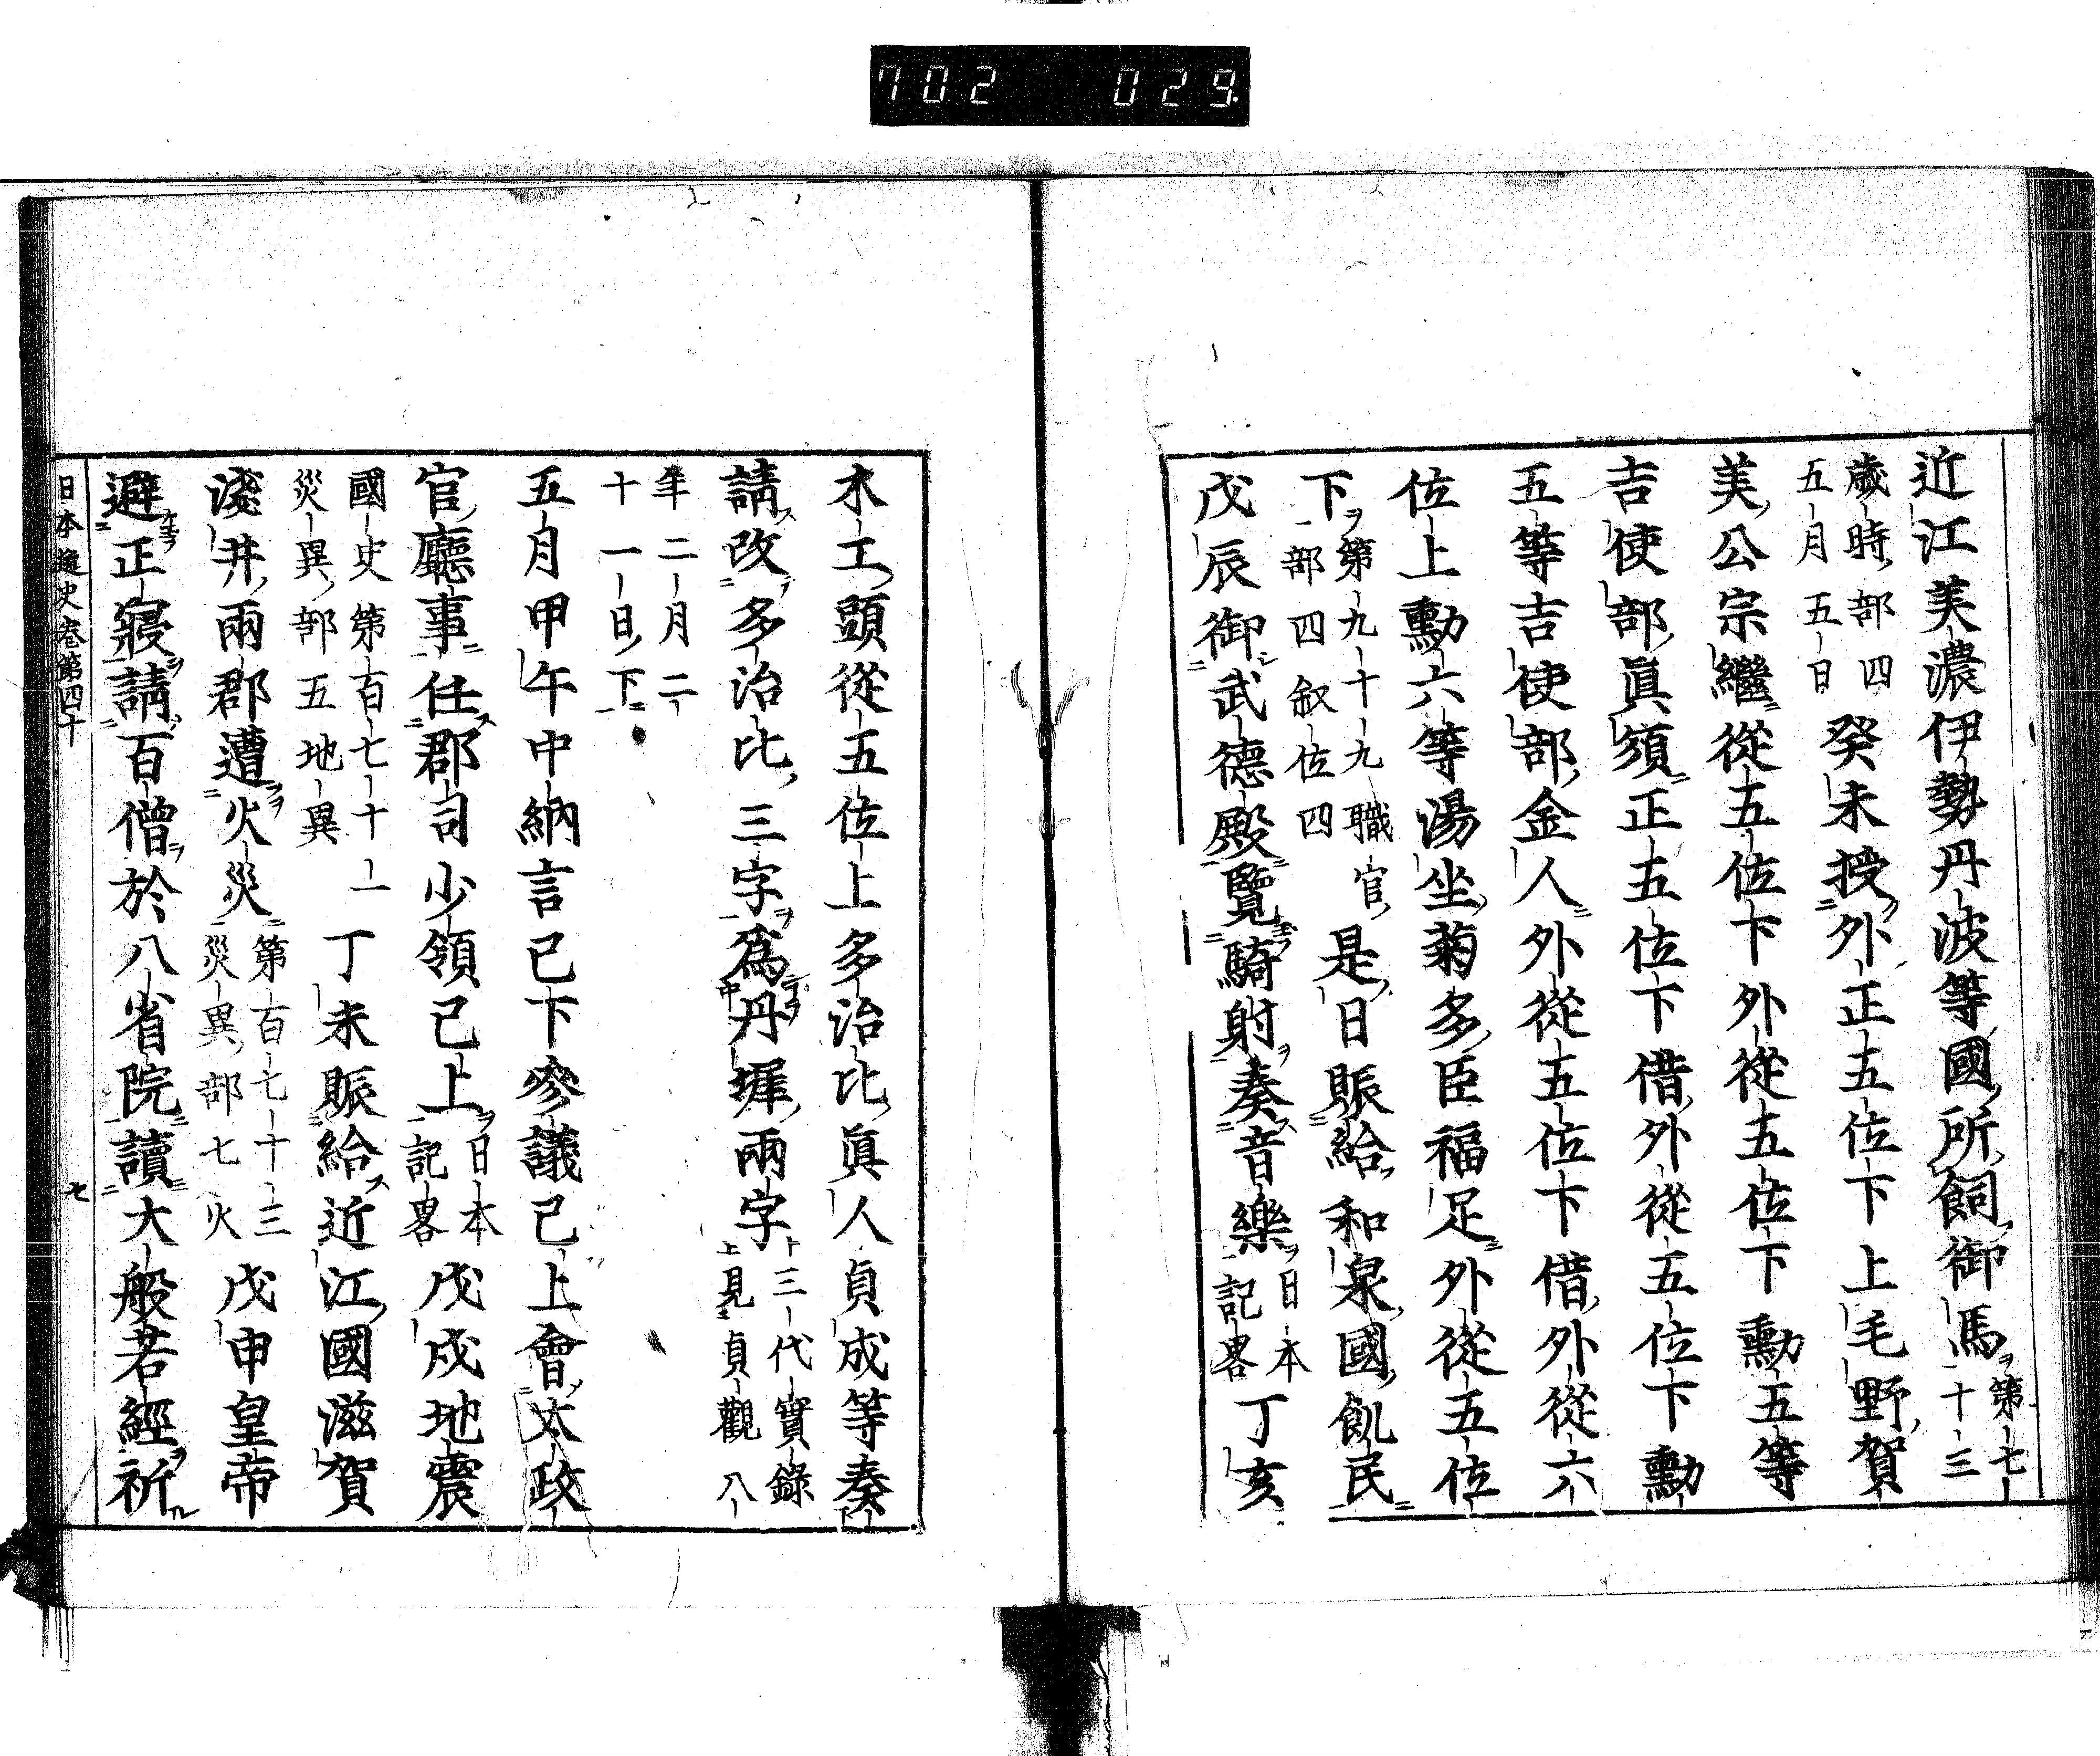 702 029
近江美濃伊勢丹波等國所飼御馬第七
十三
歲時部四
五月五日癸未授外正五位下上毛野賀
美公宗繼從五位下外從五位下勳五等
吉使部眞須正五位下借外從五位下勳
五等吉使部金人外從五位下借外從六
位上勳六等湯坐菊多臣福足外從五位
下第九十九職官
部四叙位四是日賑給和泉國飢民
戊辰御武德殿覽騎射奏音樂日本
記畧丁亥
木工頭從五位上多治比眞人貞成等奏
請改多治比三字爲丹墀兩字三代實錄
見貞觀八
年二月二
十一日下
五月甲午中納言已下參議已上會太政
官廳事任郡司少領已上日本
記畧戊戌地震
國史第百七十一
災異部五地異丁未賑給近江國滋賀
淺井兩郡遭火災第百七十三
災異部七火戊申皇帝
避正寢請百僧於八省院讀大般若經祈
日本逸史卷第四十 七